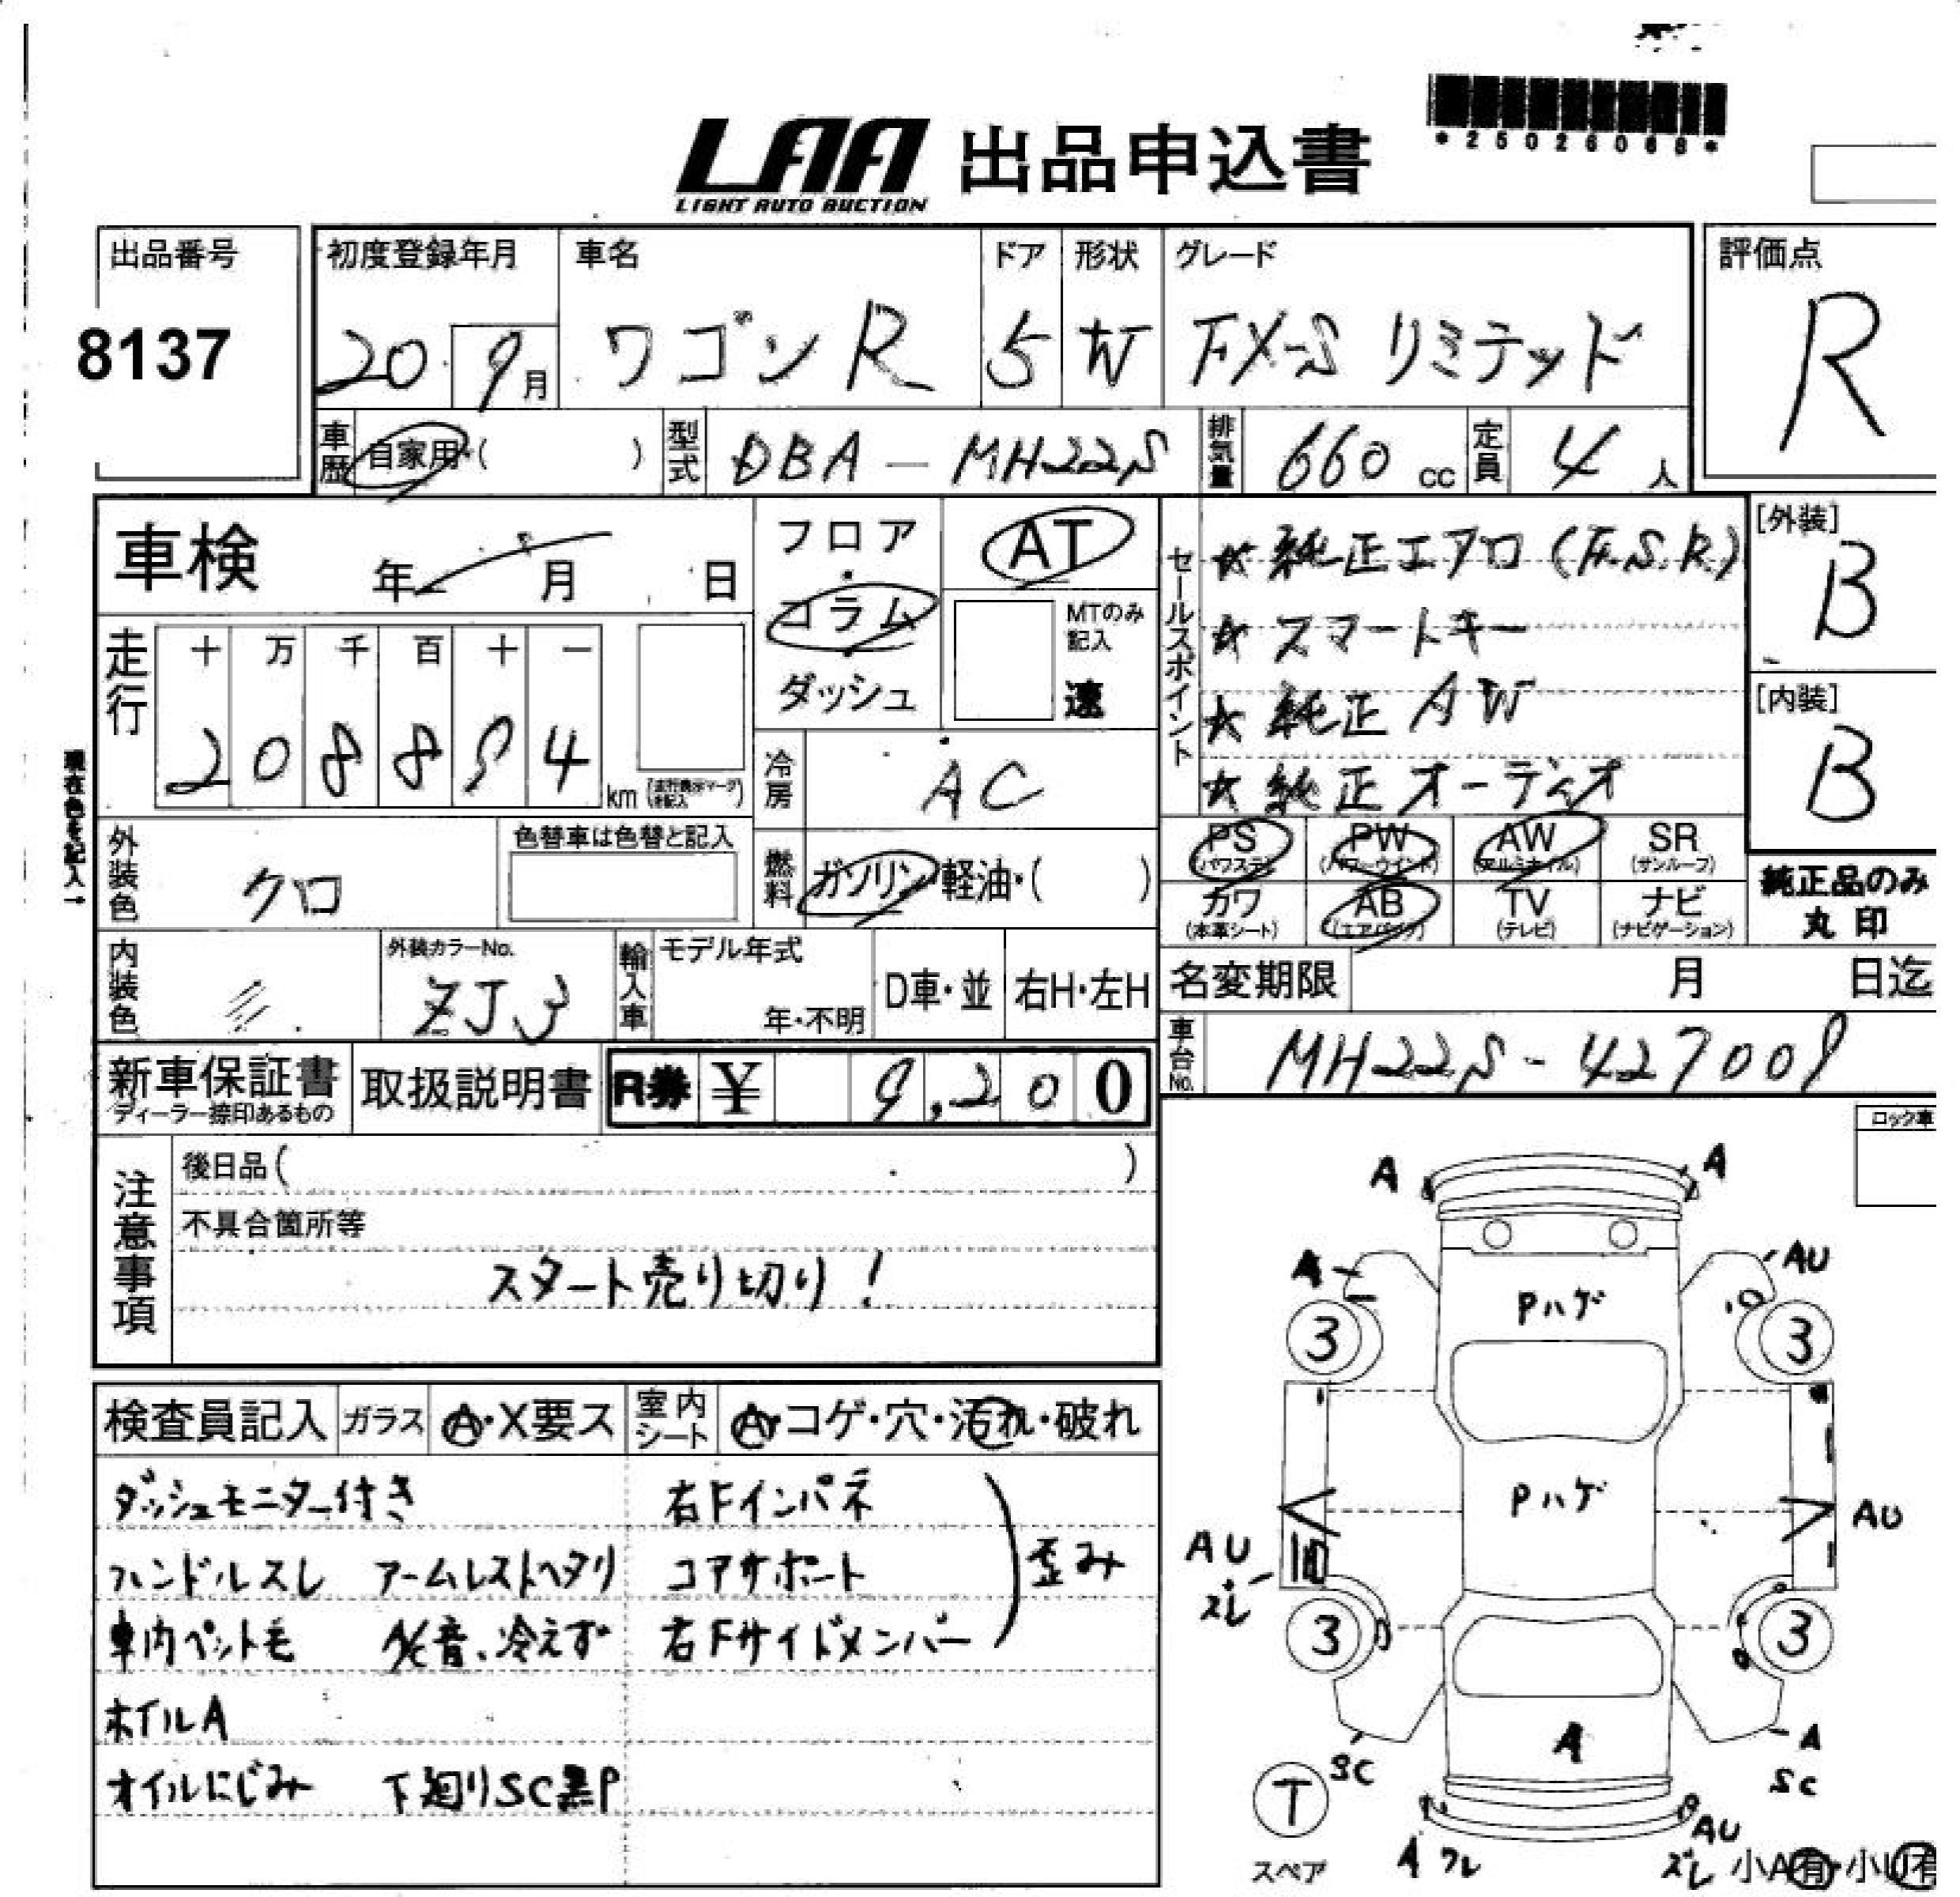 *25026068*
LAA 出品申込書
LIGHT AUTO AUCTION
出品番号
8137
初度登録年月
20 9月
車名
ワゴンR
ドア
5
形状
W
グレード
FX-S リミテッド
評価点
R
車歴 自家用・( )
型式 DBA-MH22S
排気量 660 cc
定員 4人
車検 年 月 日
フロア・コラム・ダッシュ
AT
MTのみ記入
速
セールスポイント
☆ 純正エアロ (F.S.R)
☆ スマートキー
☆ 純正 AW
☆ 純正オーディオ
[外装]
B
[内装]
B
走行
十 万 千 百 十 一
2 0 8 8 9 4 km
冷房 AC
現在色を記入→
外装色 クロ
色替車は色替と記入
燃料 ガソリン・軽油・( )
PS (パワステ)
PW (パワーウインド)
AW (アルミホイル)
SR (サンルーフ)
カワ (本革シート)
AB (エアバッグ)
TV (テレビ)
ナビ (ナビゲーション)
純正品のみ
丸印
内装色
外装カラーNo.
ZJ3
輸入車
モデル年式
年・不明
D車・並
右H・左H
名変期限 月 日迄
車台No. MH22S-427009
新車保証書
ディーラー捺印あるもの
取扱説明書
R券 ¥ 9,200
注意事項
後日品( )
不具合箇所等
スタート売り切り!
ロック車
検査員記入
ガラス A・X要ス
室内シート A・コゲ・穴・汚れ・破れ
ダッシュモニター付き
右Fインパネ
ハンドルスレ アームレストヘタリ
コアサポート
歪み
車内ペット毛 A/C音、冷えず
右Fサイドメンバー
ホイルA
オイルにじみ 下廻りSC黒P
A A
A AU
Pハゲ
3 3
Pハゲ
AU
AU
ズレ
3 3
A
SC
A
SC
T
スペア
A ワレ
AU
ズレ
小A有・小U有